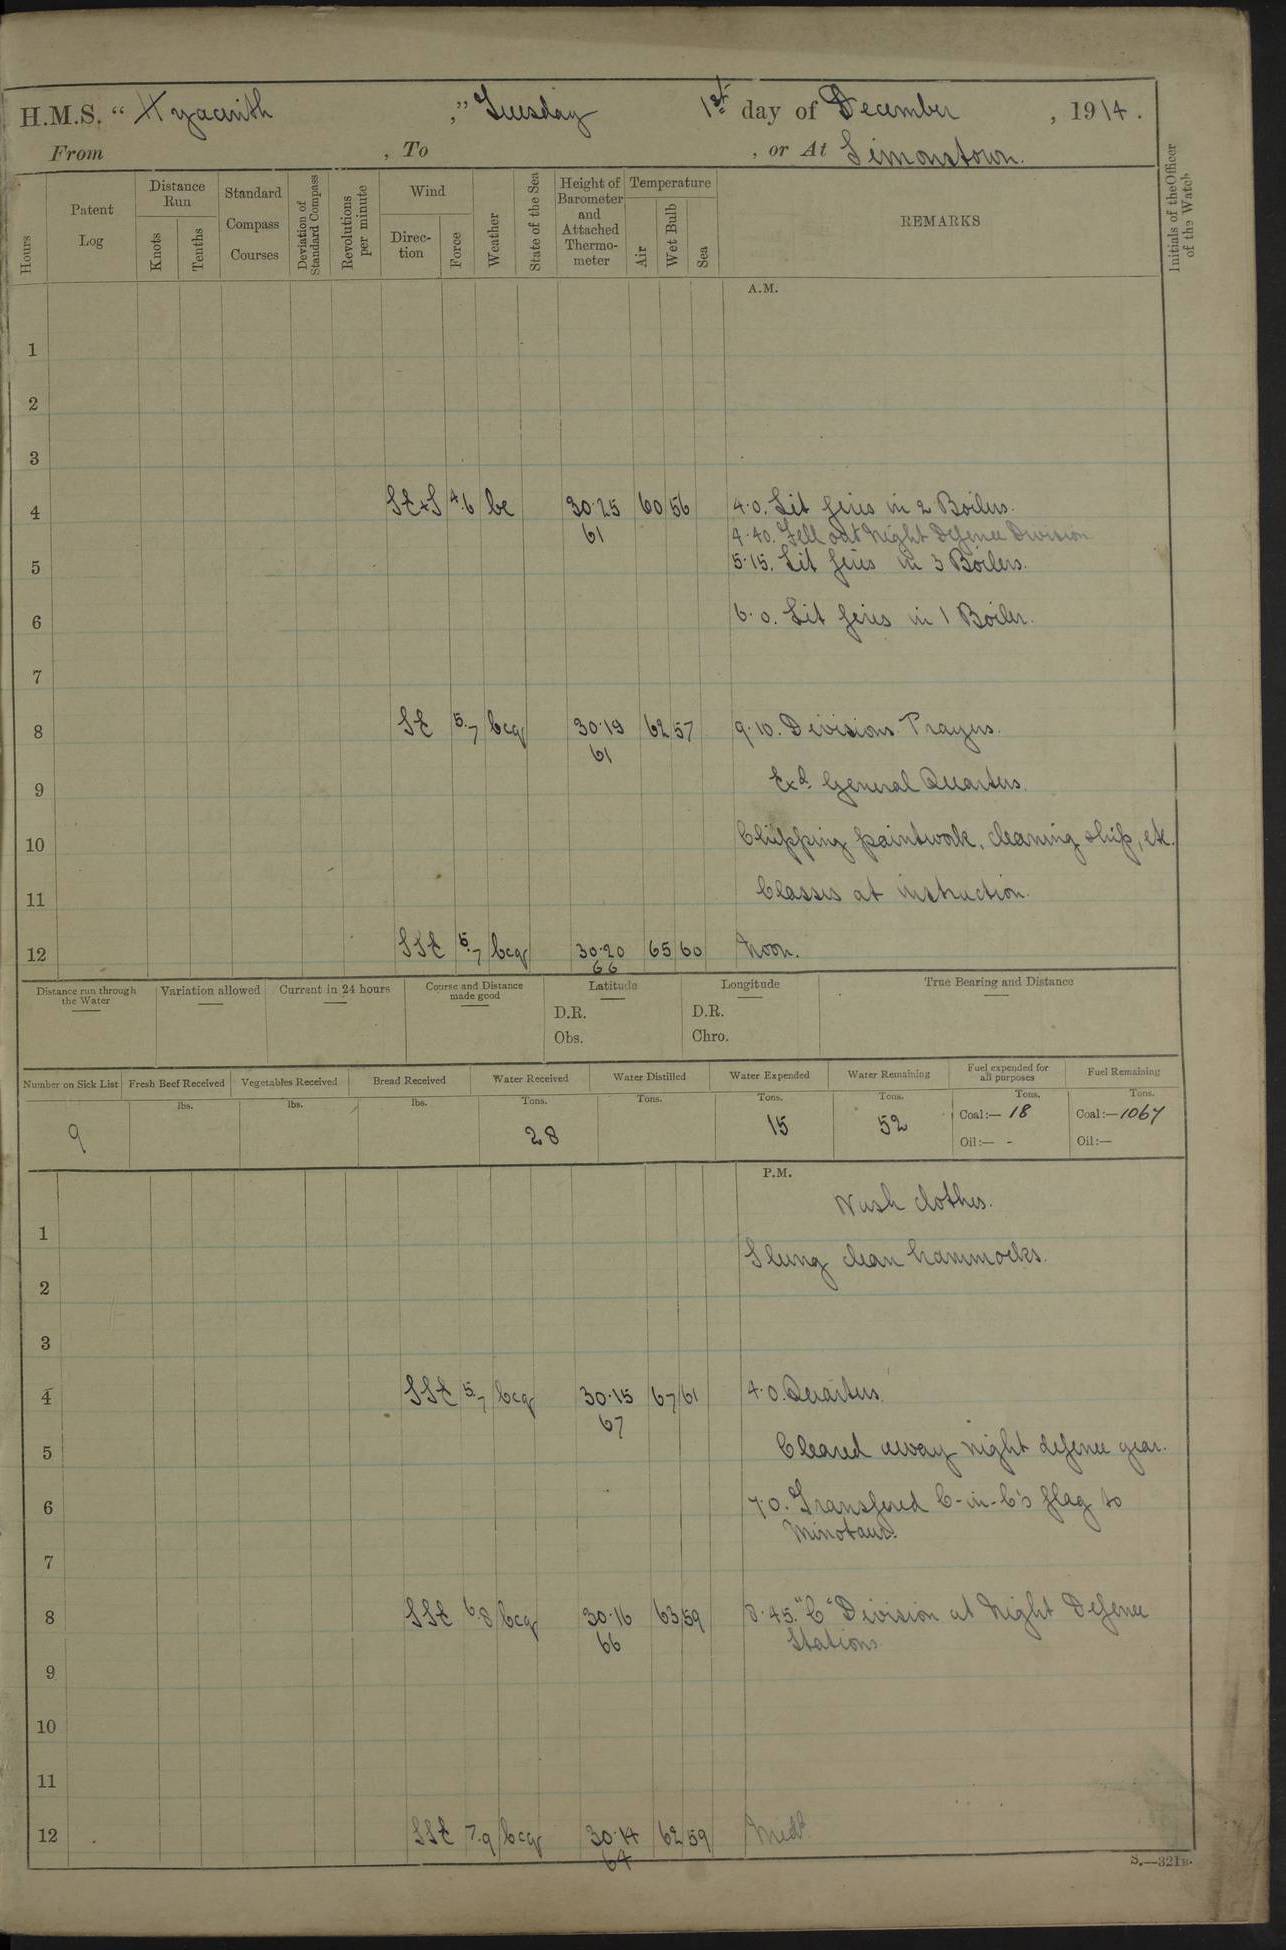 H.M.S. “ Hyacinth ,” Tuesday 1st day of December , 1914.
From , To , or At Simonstown.
Hours
Patent Log
Distance Run
Knots
Tenths
Standard Compass Courses
Deviation of Standard Compass
Revolutions per minute
Wind
Direction
Force
Weather
State of the Sea
Height of Barometer and Attached Thermometer
Temperature
Air
Wet Bulb
Sea
REMARKS
Initials of the Officer of the Watch
A.M.
1
2
3
4 SE+S 4.6 bc 30.25 60 56 4.0. Lit fires in 2 Boilers.
61 4.40. Fell out Night Defence Division
5 5.15. Lit fires in 3 Boilers.
6 6.0. Lit fires in 1 Boiler.
7
8 SE 5.7 bcq 30.19 62 57 9.10. Divisions Prayers.
61
9 Exd General Quarters.
10 Chipping paintwork, cleaning ship, etc.
11 Classes at instruction.
12 SSE 5.7 bcq 30.20 65 60 Noon.
66
Distance run through the Water
Variation allowed
Current in 24 hours
Course and Distance made good
Latitude
D.R.
Obs.
Longitude
D.R.
Chro.
True Bearing and Distance
Number on Sick List Fresh Beef Received Vegetables Received Bread Received Water Received Water Distilled Water Expended Water Remaining Fuel expended for all purposes Fuel Remaining
lbs. lbs. lbs. Tons. Tons. Tons. Tons. Tons. Tons.
9 28 15 52 Coal:— 18 Coal:— 1067
Oil:— - Oil:—
P.M.
Wash clothes.
1
Slung clean hammocks.
2
3
4 SSE 5.7 bcq 30.15 67 61 4.0. Quarters.
67
5 Cleared away night defence gear.
6 7.0. Transfered C-in-C's flag to
Minotaur.
7
8 SSE 6.8 bcq 30.16 63 59 8.45. "C" Division at Night Defence
66 Stations
9
10
11
12 SSE 7.9 bcq 30.14 62 59 Midt
64
S.—321B.